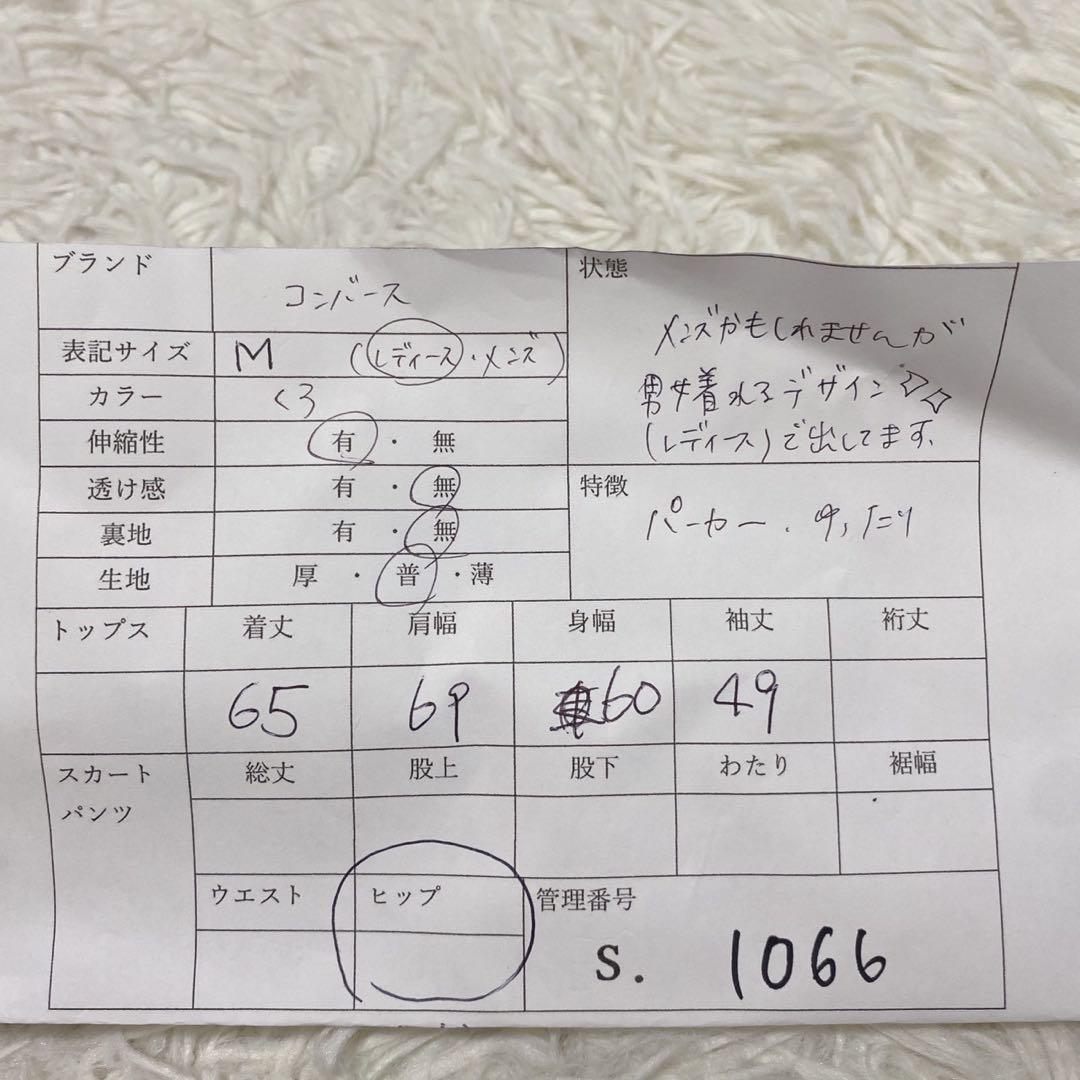 ブランド
コンバース
表記サイズ M (レディース・メンズ)
カラー くろ
伸縮性 有・無
透け感 有・無
裏地 有・無
生地 厚・普・薄
状態
メンズかもしれませんが
男女着れるデザイン
(レディース)で出してます。
特徴
パーカー、ゆったり
トップス 着丈 肩幅 身幅 袖丈 裄丈
65 69 60 49
スカート 総丈 股上 股下 わたり 裾幅
パンツ
ウエスト ヒップ 管理番号
S. 1066